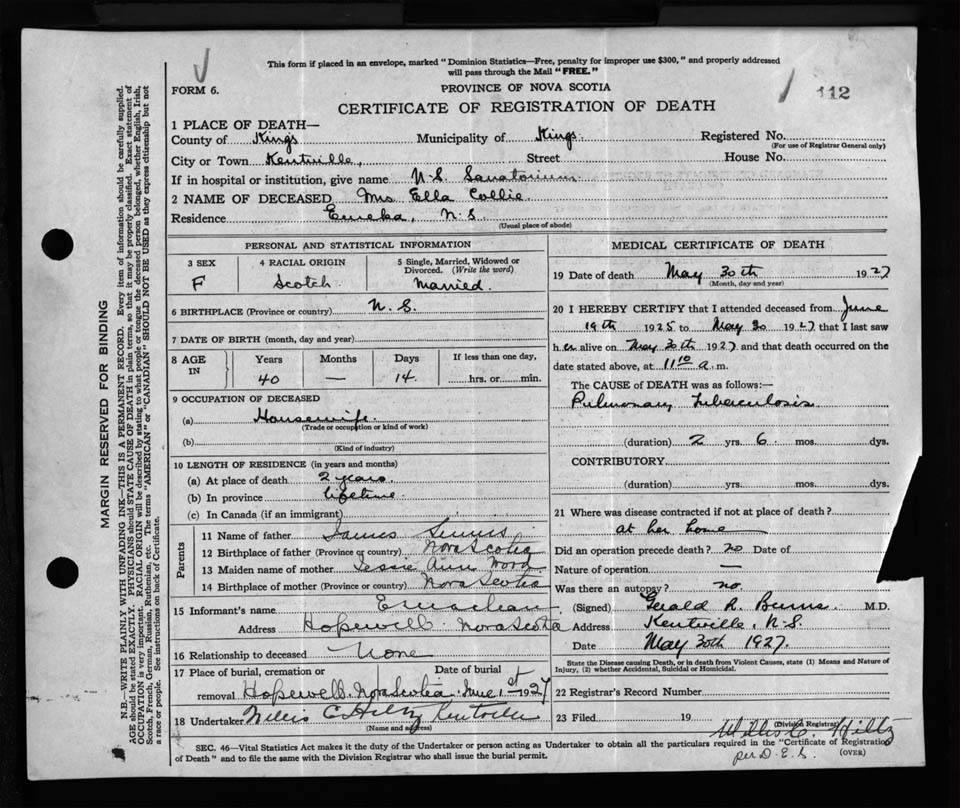 This form if placed in an envelope, marked "Dominion Statistics—Free, penalty for improper use $300," and properly addressed
will pass through the Mail "FREE."
FORM 6.
PROVINCE OF NOVA SCOTIA
112
CERTIFICATE OF REGISTRATION OF DEATH
1 PLACE OF DEATH—
County of Kings Municipality of Kings Registered No.
(For use of Registrar General only)
City or Town Kentville, Street House No.
If in hospital or institution, give name N.S. Sanatorium
2 NAME OF DECEASED Mrs Ella Collie
Residence Eureka, N.S.
(Usual place of abode)
PERSONAL AND STATISTICAL INFORMATION
3 SEX 4 RACIAL ORIGIN 5 Single, Married, Widowed or Divorced. (Write the word)
F Scotch Married.
6 BIRTHPLACE (Province or country) N.S.
7 DATE OF BIRTH (month, day and year)
8 AGE IN Years Months Days If less than one day,
40 — 14 hrs. or min.
9 OCCUPATION OF DECEASED
(a) Housewife
(Trade or occupation or kind of work)
(b)
(Kind of industry)
10 LENGTH OF RESIDENCE (in years and months)
(a) At place of death 2 years.
(b) In province lifetime
(c) In Canada (if an immigrant)
Parents
11 Name of father James
12 Birthplace of father (Province or country) Nova Scotia
13 Maiden name of mother Jessie Ann
14 Birthplace of mother (Province or country) Nova Scotia
15 Informant's name
Address Hopewell Nova Scotia
16 Relationship to deceased None
17 Place of burial, cremation or Date of burial
removal Hopewell, Nova Scotia June 1st 1927
18 Undertaker Willis C. Hiltz Kentville
(Name and address)
MEDICAL CERTIFICATE OF DEATH
19 Date of death May 30th 1927
(Month, day and year)
20 I HEREBY CERTIFY that I attended deceased from June
19th 1925 to May 30 1927 that I last saw
h er alive on May 30th 1927 and that death occurred on the
date stated above, at 11 10 a. m.
The CAUSE of DEATH was as follows:—
Pulmonary Tuberculosis
(duration) 2 yrs. 6 mos. dys.
CONTRIBUTORY
(duration) yrs. mos. dys.
21 Where was disease contracted if not at place of death?
at her home
Did an operation precede death? no Date of
Nature of operation —
Was there an autopsy? no.
(Signed) Gerald R. Burns M.D.
Address Kentville, N.S.
Date May 30th 1927.
State the Disease causing Death, or in death from Violent Causes, state (1) Means and Nature of
Injury, (2) whether Accidental, Suicidal or Homicidal.
22 Registrar's Record Number
23 Filed 19
(Division Registrar)
Willis C. Hiltz
per D.E.S.
SEC. 46—Vital Statistics Act makes it the duty of the Undertaker or person acting as Undertaker to obtain all the particulars required in the "Certificate of Registration
of Death" and to file the same with the Division Registrar who shall issue the burial permit.
(OVER)
MARGIN RESERVED FOR BINDING
N.B.—WRITE PLAINLY WITH UNFADING INK—THIS IS A PERMANENT RECORD. Every item of information should be carefully supplied.
AGE should be stated EXACTLY. PHYSICIANS should STATE CAUSE OF DEATH in plain terms, so that it may be properly classified. Exact statement of
OCCUPATION is very important. RACIAL ORIGIN will be described by stating to what people or tongue the deceased person belonged, whether English, Irish,
Scotch, French, German, Russian, Ruthenian, etc. The terms "AMERICAN" or "CANADIAN" SHOULD NOT BE USED as they express citizenship but not
a race or people. See instructions on back of Certificate.